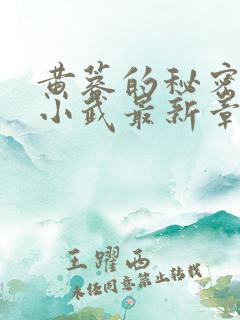 黄蓉的秘密
小武最新章
王躍西
未经同意禁止转载